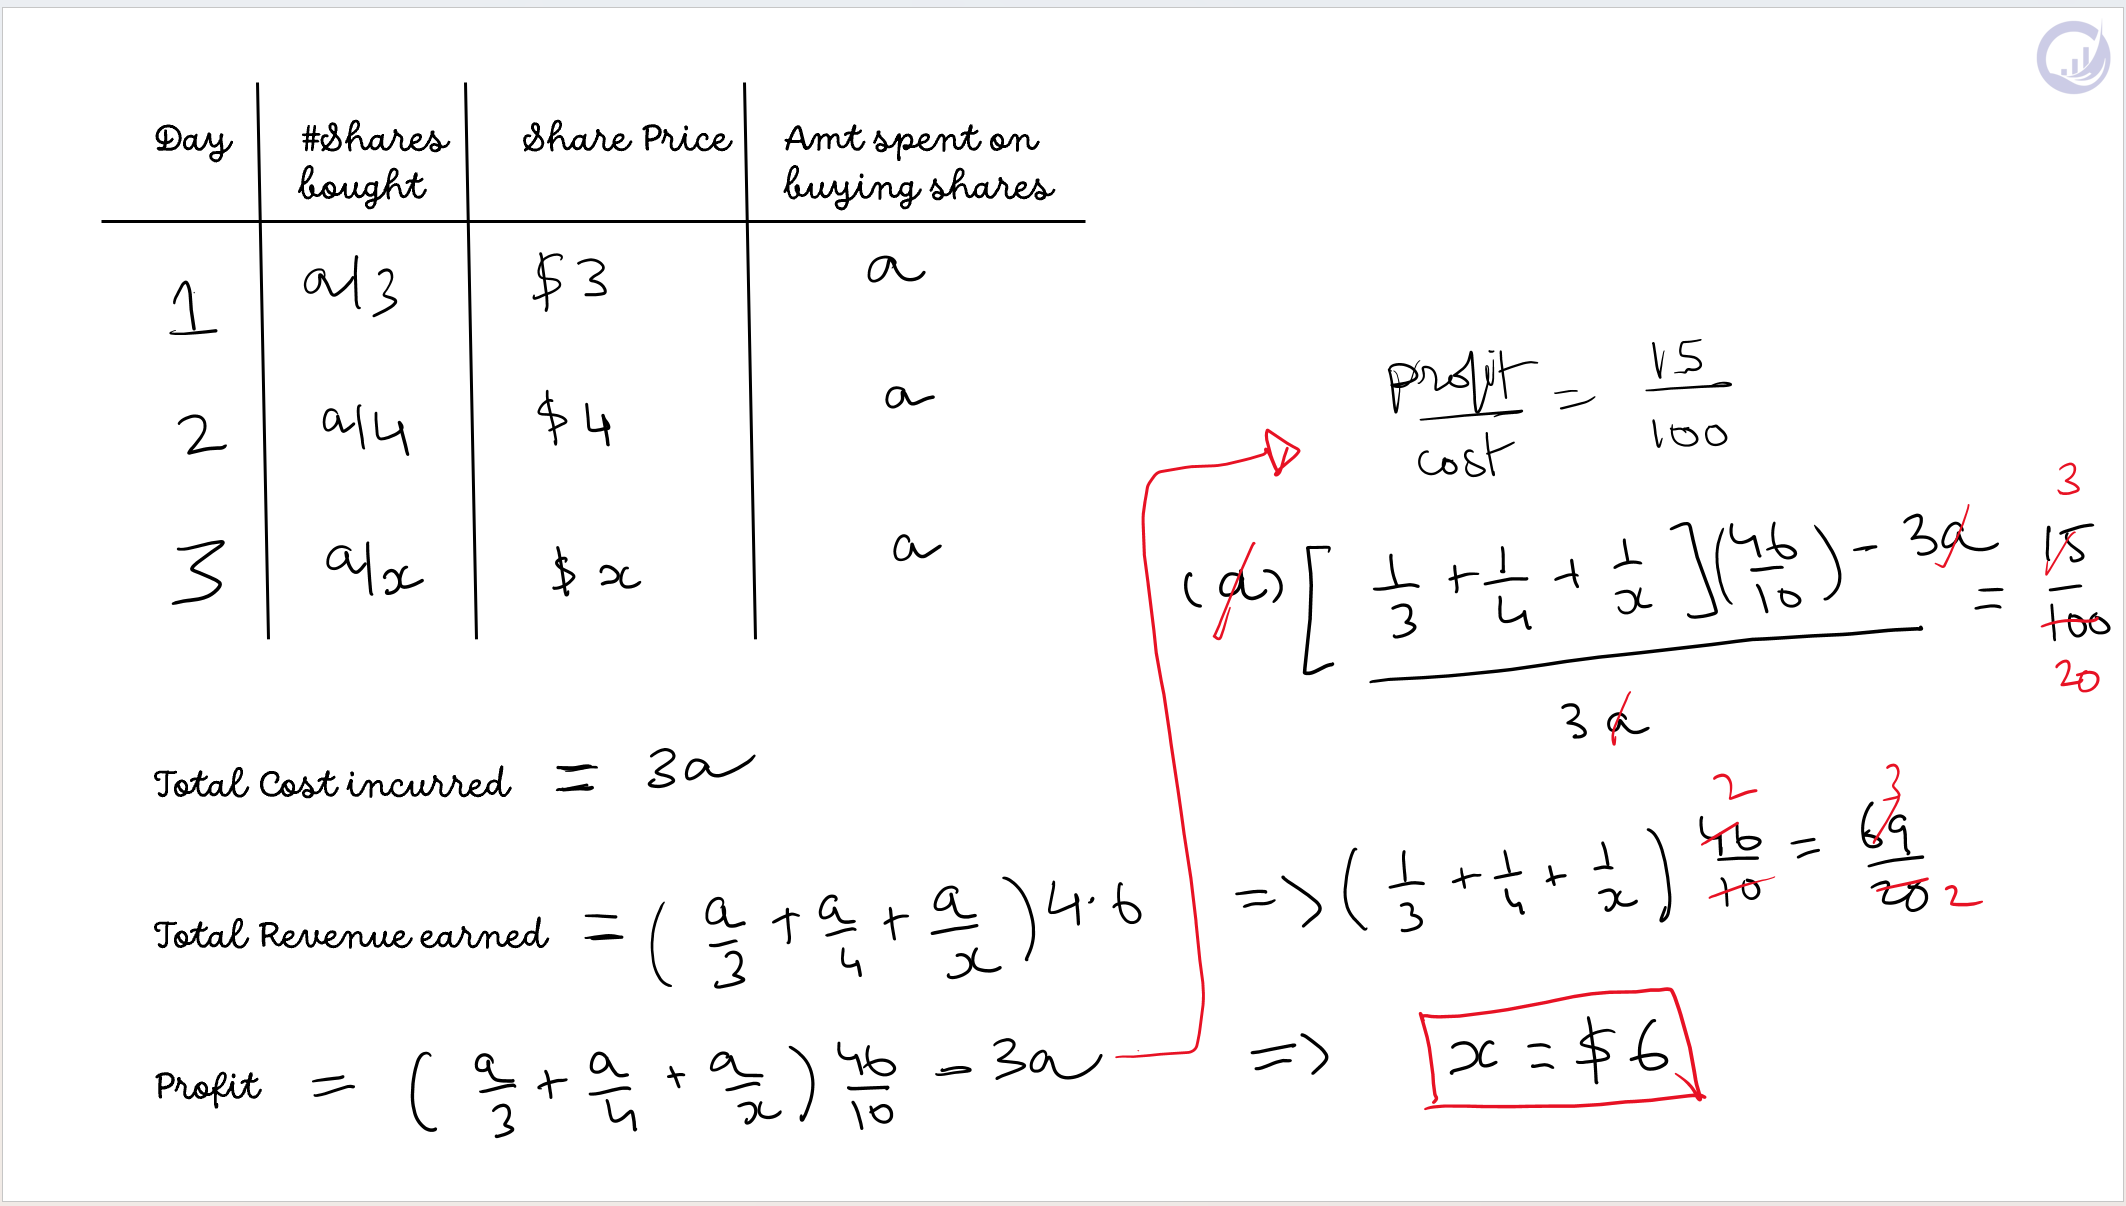 Day #Shares bought Share Price Amt spent on buying shares
1 a/3 $3 a
2 a/4 $4 a
3 a/x $x a
Total Cost incurred = 3a
Total Revenue earned = (a/3 + a/4 + a/x) 4.6
Profit = (a/3 + a/4 + a/x) 46/10 - 3a
profit/cost = 15/100
(a) [1/3 + 1/4 + 1/x] (46/10) - 3a / 3a = 15/100
3
20
=> (1/3 + 1/4 + 1/x) 46/10 = 69/20
2
3
2
=> x = $6